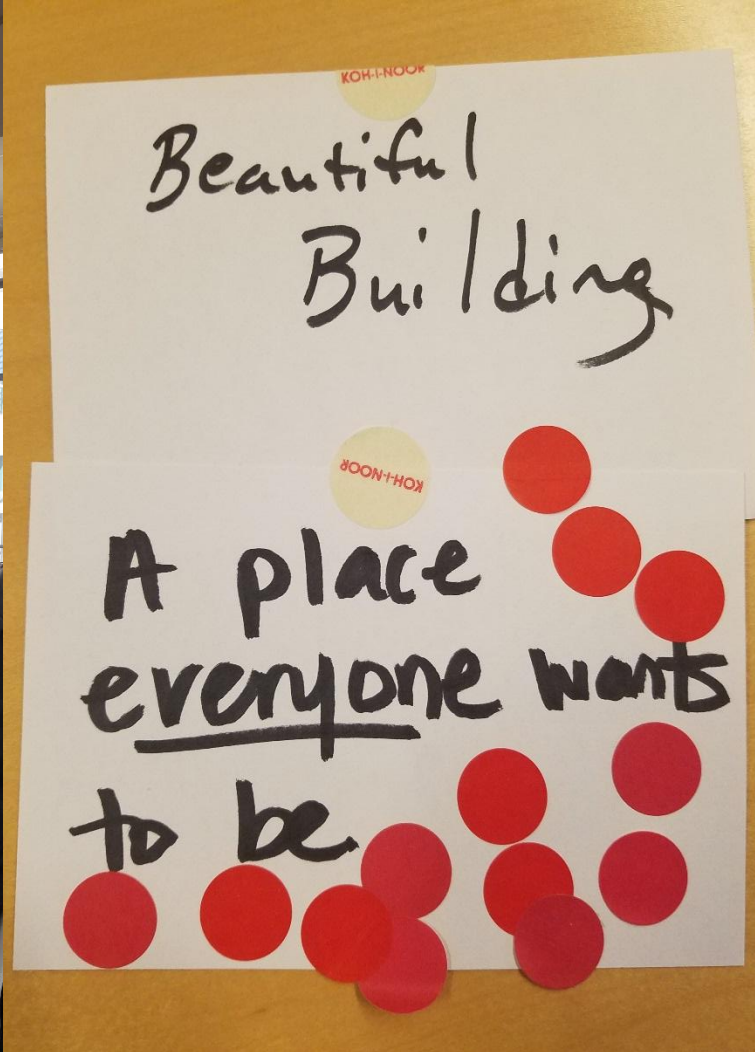 KOH-I-NOOR
Beautiful
Building
KOH-I-NOOR
A place
everyone wants
to be